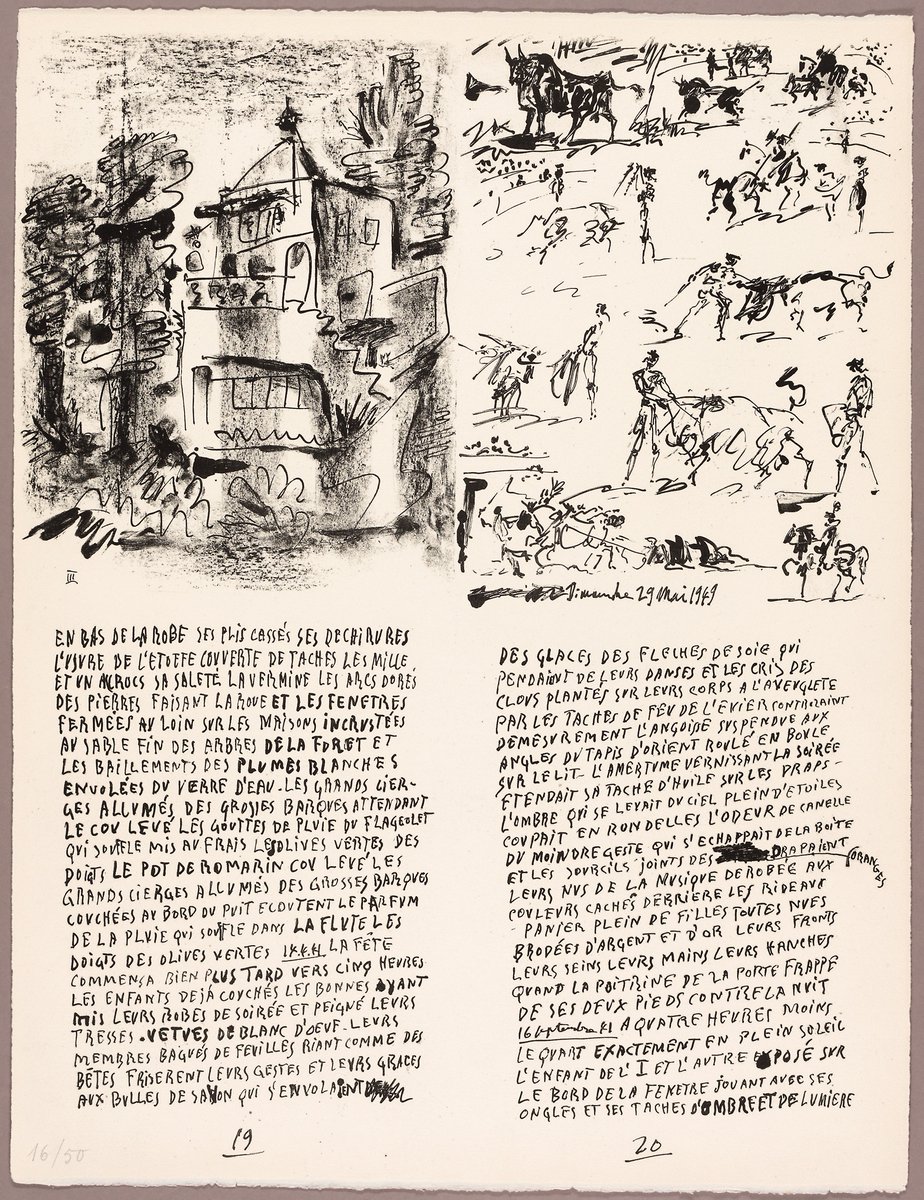 III
Dimanche 29 Mai 1949
EN BAS DE LA ROBE SES PLIS CASSÉS SES DECHIRURES
L'USURE DE L'ETOFFE COUVERTE DE TACHES LES MILLE
ET UN ACCROCS SA SALETÉ LA VERMINE LES ARCS DORÉS
DES PIERRES FAISANT LA ROUE ET LES FENETRES
FERMÉES AU LOIN SUR LES MAISONS INCRUSTÉES
AU SABLE FIN DES ARBRES DE LA FORET ET
LES BAILLEMENTS DES PLUMES BLANCHES
ENVOLÉES DU VERRE D'EAU. LES GRANDS CIER-
GES ALLUMÉS DES GROSSES BARQUES ATTENDANT
LE COU LEVÉ LES GOUTTES DE PLUIE DU FLAGEOLET
QUI SOUFFLE MIS AU FRAIS LES OLIVES VERTES DES
DOIGTS LE POT DE ROMARIN COU LEVÉ LES
GRANDS CIERGES ALLUMÉS DES GROSSES BARQUES
COUCHÉES AU BORD DU PUIT ECOUTENT LE PARFUM
DE LA PLUIE QUI SOUFFLE DANS LA FLUTE LES
DOIGTS DES OLIVES VERTES LA FÊTE
COMMENÇA BIEN PLUS TARD VERS CINQ HEURES
LES ENFANTS DEJÀ COUCHÉS LES BONNES AYANT
MIS LEURS ROBES DE SOIRÉE ET PEIGNÉ LEURS
TRESSES. VETUES DE BLANC D'OEUF. LEURS
MEMBRES BAGUÉS DE FEUILLES RIANT COMME DES
BÊTES FRISERENT LEURS GESTES ET LEURS GRACES
AUX BULLES DE SAVON QUI S'ENVOLAIENT
19
DES GLACES DES FLECHES DE SOIE QUI
PENDAIENT DE LEURS DANSES ET LES CRIS DES
CLOUS PLANTÉS SUR LEURS CORPS A L'AVEUGLETE
PAR LES TACHES DE FEU DE L'EVIER CONTRAIANT
DEMESUREMENT L'ANGOISE SUSPENDUE AUX
ANGLES DU TAPIS D'ORIENT ROULÉ EN BOULE
SUR LE LIT - L'AMERTUME VERNISSANT LA SOIRÉE
ETENDAIT SA TACHE D'HUILE SUR LES DRAPS -
L'OMBRE QUI SE LEVAIT DU CIEL PLEIN D'ETOILES
COUPAIT EN RONDELLES L'ODEUR DE CANELLE
DU MOINDRE GESTE QUI S'ECHAPPAIT DE LA BOITE
ET LES SOURCILS JOINTS DES ORANGES DRAPAIENT
LEURS NUS DE LA MUSIQUE DEROBÉE AUX
COULEURS CACHÉS DERRIÈRE LES RIDEAUX
- PANIER PLEIN DE FILLES TOUTES NUES
BRODÉES D'ARGENT ET D'OR LEURS FRONTS
LEURS SEINS LEURS MAINS LEURS HANCHES
QUAND LA POITRINE DE LA PORTE FRAPPE
DE SES DEUX PIEDS CONTRE LA NUIT
16 septembre 41 A QUATRE HEURES MOINS
LE QUART EXACTEMENT EN PLEIN SOLEIL
L'ENFANT DE L'I ET L'AUTRE EXPOSÉ SUR
LE BORD DE LA FENETRE JOUANT AVEC SES
ONGLES ET SES TACHES D'OMBRE ET DE LUMIERE
20
16/50